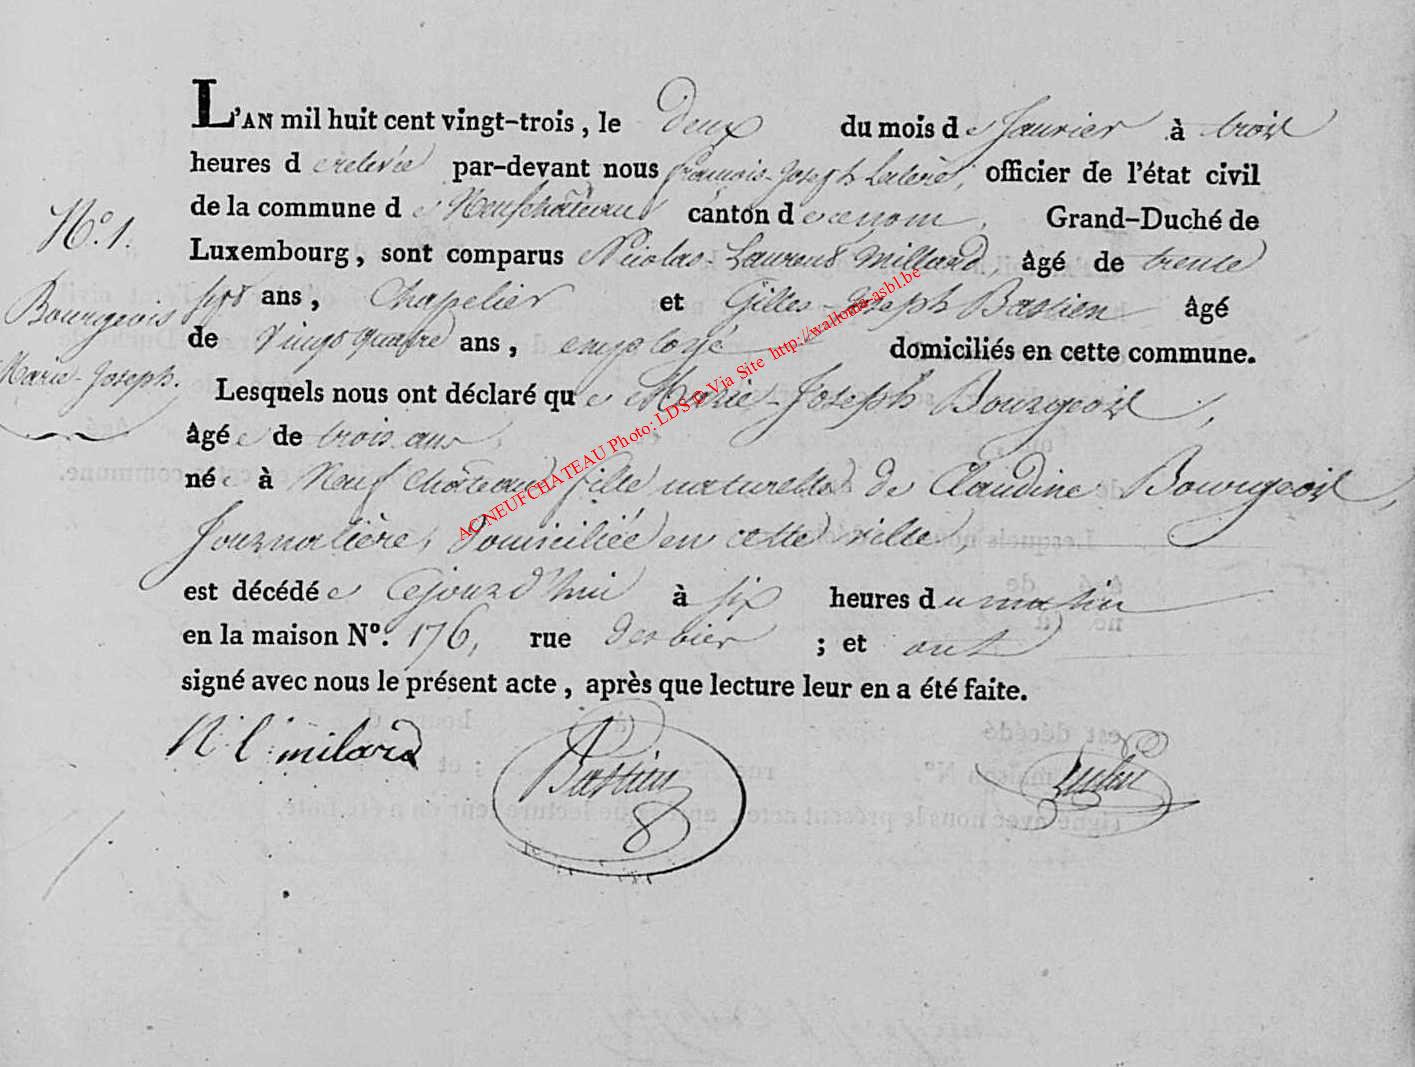 L'AN mil huit cent vingt-trois, le deux du mois de Janvier à trois
heures de relevée par-devant nous françois-Joseph officier de l'état civil
de la commune de Neufchâteau canton de ce nom, Grand-Duché de
N.° 1.
Luxembourg, sont comparus Nicolas-Laurent Millard, âgé de trente
sept ans, Chapelier et Gilles-Joseph Bastien âgé
Bourgeois
de Vingt quatre ans, employé domiciliés en cette commune.
Marie-Joseph.
Lesquels nous ont déclaré que Marie-Joseph Bourgeois,
âgée de trois ans,
née à Neufchâteau fille naturelle de Claudine Bourgeois,
Journalière, Domiciliée en cette ville,
est décédée Cejourd'hui à six heures du matin
en la maison N°. 176, rue ; et ont
signé avec nous le présent acte, après que lecture leur en a été faite.
N. l. milard Bastien
AC NEUFCHATEAU Photo: LDS © Via Site http://wallonia-asbl.be